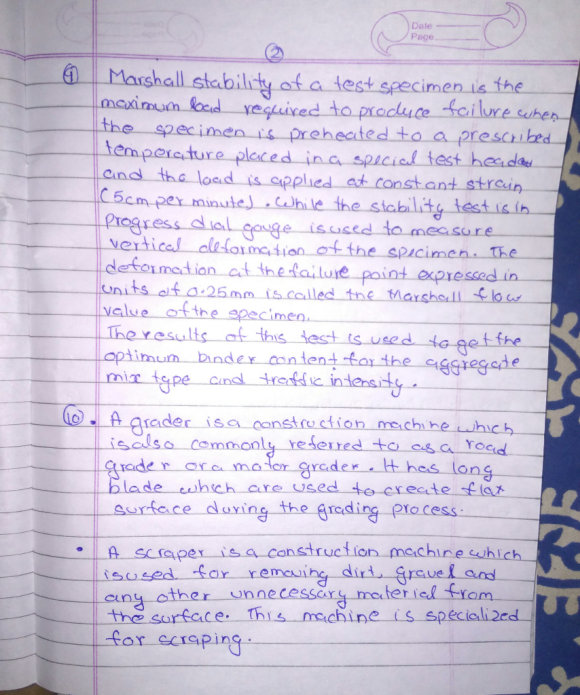 Date
Page
2
9 Marshall stability of a test specimen is the
maximum load required to produce failure when
the specimen is preheated to a prescribed
temperature placed in a special test headed
and the load is applied at constant strain
(5cm per minute). While the stability test is in
progress dial gauge is used to measure
vertical deformation of the specimen. The
deformation at the failure point expressed in
units of 0.25mm is called the Marshall flow
value of the specimen.
The results of this test is used to get the
optimum binder content for the aggregate
mix type and traffic intensity.
10. • A grader is a construction machine which
is also commonly referred to as a road
grader or a motor grader. It has long
blade which are used to create flat
surface during the grading process.
• A scraper is a construction machine which
is used for removing dirt, gravel and
any other unnecessary material from
the surface. This machine is specialized
for scraping.